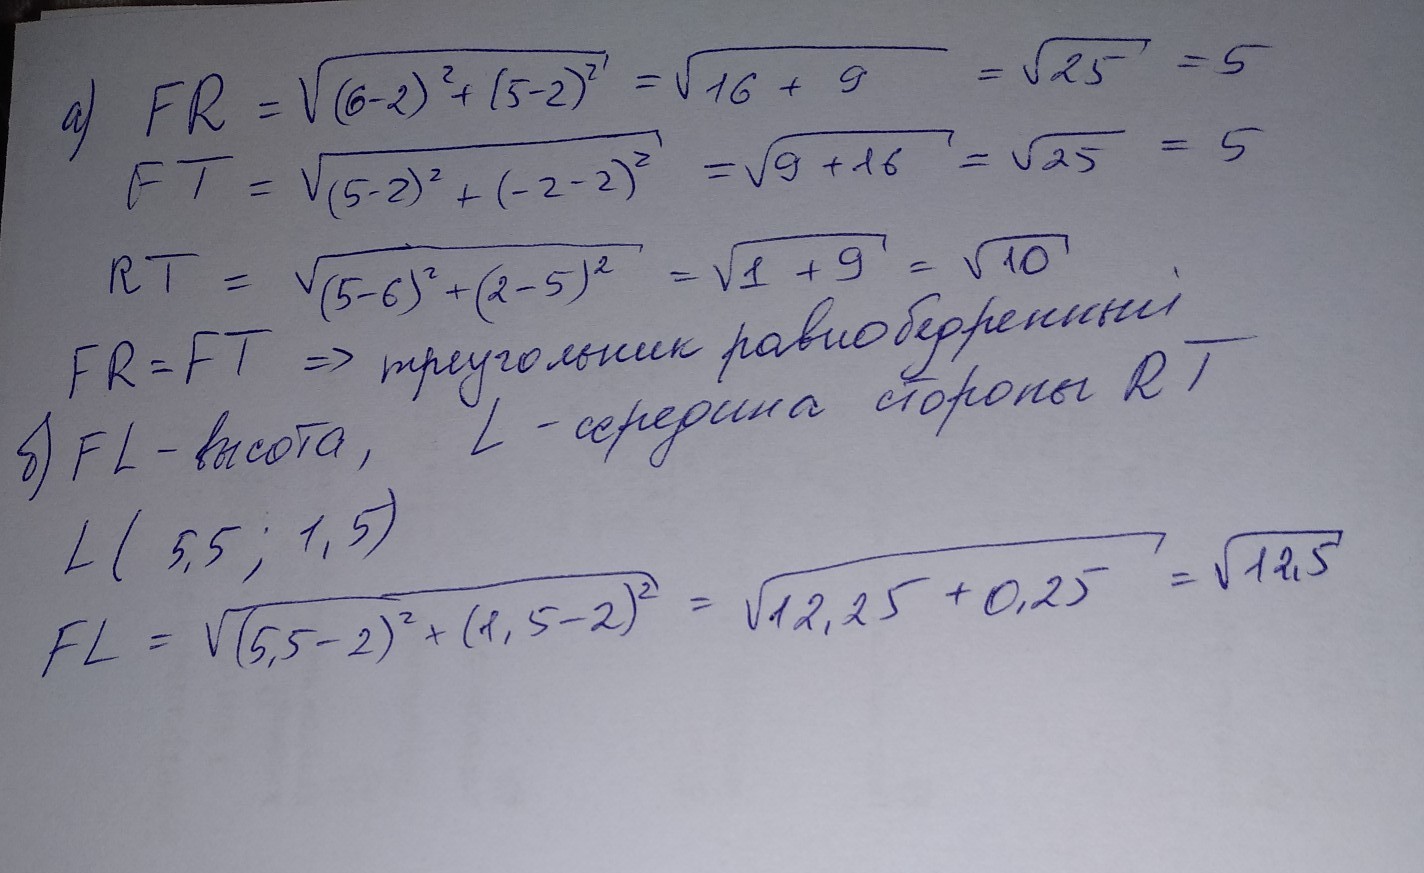 а) FR = √(6-2)² + (5-2)² = √16 + 9 = √25 = 5
FT = √(5-2)² + (-2-2)² = √9 + 16 = √25 = 5
RT = √(5-6)² + (2-5)² = √1 + 9 = √10
FR = FT => треугольник равнобедренный
б) FL - высота, L - середина стороны RT
L( 5,5 ; 1,5)
FL = √(5,5-2)² + (1,5-2)² = √12,25 + 0,25 = √12,5